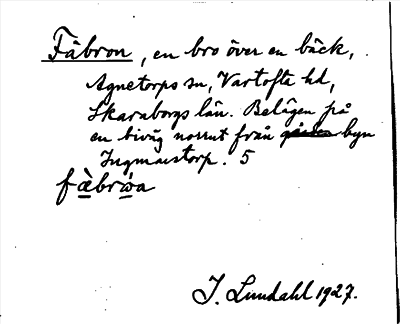 Fäbron, en bro över en bäck,
Agnetorps sn, Vartofta hd,
Skaraborgs län. Belägen på
en biväg norrut från gården byn
Ingmarstorp. 5
fä̀brὼa
J. Lundahl 1927.